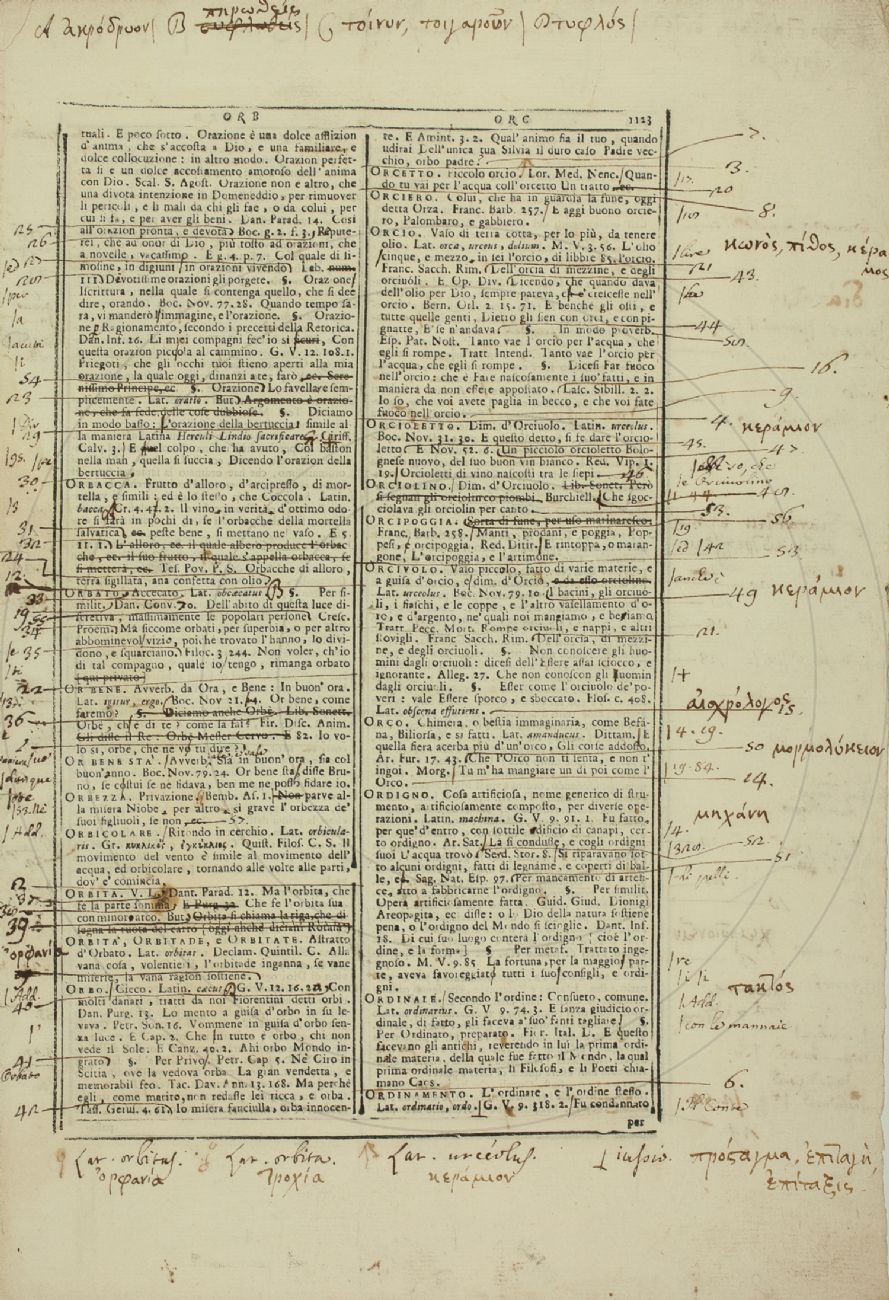 A ἀκρόδρυον B πηρωθείς C τοίνυν, τοιγαροῦν D τυφλός
ORB
ORC
1123
tuali. E poco sotto. Orazione è una dolce afflizion
d'anima, che s'accosta a Dio, e una familiare, e
dolce collocuzione: in altro modo. Orazion perfet-
ta si e un dolce accostamento amoroso dell'anima
con Dio. Scal. S. Agost. Orazione non e altro, che
una divota intenzione in Domeneddio, per rimuover
li pericoli, e li mali da chi gli fae, o da colui, per
cui li fa, e per aver gli beni. Dan. Parad. 14. Così
all'orazion pronta, e devota Boc. g. 2. f. 3. Repute-
rei, che au onor di Dio, più tosto ad orazioni, che
a novelle, vacassimo. E g. 4. p. 7. Col quale di li-
mosine, in digiuni in orazioni vivendo Lib. num.
111 Devotissime orazioni gli porgete. §. Oraz one
Iscrittura, nella quale si contenga quello, che si dee
dire, orando. Boc. Nov. 77.28. Quando tempo sa-
rà, vi manderò l'immagine, e l'orazione. §. Orazio-
ne Ragionamento, secondo i precetti della Retorica.
Dan. Inf. 26. Li miei compagni fec'io sì sicuri, Con
questa orazion picciola al cammino. G. V. 12. 108.1.
Priegoti, che gli occhi tuoi stieno aperti alla mia
orazione, la quale oggi, dinanzi a te, farò ec. Sere-
nissimo Principe, ec. §. Orazione Lo favellare sem-
plicemente. Lat. oratio. But Argomento è orazio-
ne, che fa fede delle cose dubbiose. §. Diciamo
in modo basso: L'orazione della bertuccia simile al-
la maniera Latina Herculi Lindio sacrificare Ciriff.
Calv. 3. E quel colpo, che ha avuto, Col baston
nella man, quella si succia, Dicendo l'orazion della
bertuccia.
ORBACCA. Frutto d'alloro, d'arcipresso, di mor-
tella, e simili; ed è lo stesso, che Coccola. Latin.
bacca Cr. 4. 42. 2. Il vino, in verità, d'ottimo odo-
re si farà in pochi dì, se l'orbacche della mortella
salvatica ec. peste bene, si mettano ne' vaso. E 5.
11. 1. L'alloro, ec. il quale albero produce l'orbac
che, ec. il suo frutto, il quale s'appella orbacca, se
si metterà, ec. Tes. Pov. P. S. Orbacche di alloro,
terra sigillata, ana confetta con olio
ORBATO Accecato. Lat. obcæcatus §. Per si-
milit. Dan. Conv. 70. Dell'abito di questa luce di-
scretiva, massimamente le popolari persone Cresc.
Proem. Ma siccome orbati, per superbia, o per altro
abbominevol vizio, poi che trovato l'hanno, lo divi-
dono, e squarciano. Filoc. 3 244. Non voler, ch'io
di tal compagno, quale io tengo, rimanga orbato
(qui privato)
OR BENE. Avverb. da Ora, e Bene: In buon' ora.
Lat. igitur, ergo. Boc. Nov. 21. 14. Or bene, come
faremo? §. Diciamo anche Orbè. Lib. Sonett.
Orbè, che di te? come la fai? Fir. Disc. Anim.
Gli disse il Re: Orbè Messer Cervo. E 82. Io vo-
lo si, orbe, che ne vo tu dire?
OR BENE STA'. Avverb. Sia in buon' ora, sia col
buon'anno. Boc. Nov. 79. 24. Or bene sta, disse Bru-
no, se costui se ne fidava, ben me ne posso fidare io.
ORBEZZA. Privazione. Bemb. As. 1. Non parve al-
la misera Niobe, per altro, sì grave l'orbezza de'
suoi figliuoli, se non, ec.
ORBICOLARE. Ritondo in cerchio. Lat. orbicula-
ris. Gr. κυκλικὸς, ἐγκύκλιος. Quist. Filos. C. S. Il
movimento del vento è simile al movimento dell'
acqua, ed orbicolare, tornando alle volte alle parti,
dov' e' comincia.
ORBITA. V. L. Dant. Parad. 12. Ma l'orbita, che
fe la parte somma, E Purg. 32. Che fe l'orbita sua
con minor arco. But Orbita si chiama la riga, che di-
segna la ruota del carro (oggi anche diciam Rotaia)
ORBITÀ, ORBITADE, e ORBITATE. Astratto
d'Orbato. Lat. orbitas. Declam. Quintil. C. Alla
vana cosa, volentieri, l'orbitade inganna, se vane
miserie, la vana ragion sostiene.
ORBO. Cieco. Latin. cæcus G. V. 12. 16. 12. Con
molti danari, tratti da noi Fiorentini detti orbi.
Dan. Purg. 13. Lo mento a guisa d'orbo in su le-
veva. Petr. Son. 16. Vommene in guisa d'orbo sen-
za luce. E Cap. 2. Che in tutto è orbo, chi non
vede il Sole. E Canz. 40. 2. Ahi orbo Mondo in-
grato §. Per Privo. Petr. Cap 5. Nè Ciro in
Scitia, ove la vedova orba. La gran vendetta, e
memorabil feo. Tac. Dav. Ann. 13. 168. Ma perchè
egli, come marito, non redasse lei ricca, e orba.
Tass. Gerus. 4. 61. Io misera fanciulla, orba innocen-
te. E Amint. 3. 2. Qual' animo fia il tuo, quando
udirai Dell'unica tua Silvia il duro caso Padre vec-
chio, orbo padre?
ORCETTO. Piccolo orcio. Lor. Med. Nenc. Quan-
do tu vai per l'acqua coll'orcetto Un tratto, ec.
ORCIERO. Colui, che ha in guardia la fune, oggi
detta Orza. Franc. Barb. 257. E aggi buono orcie-
ro, Palombaro, e gabbiero.
ORCIO. Vaso di terra cotta, per lo più, da tenere
olio. Lat. orca, urceus, dolium. M. V. 3. 56. L'olio
cinque, e mezzo, in sei l'orcio, di libbre 85. l'orcio.
Franc. Sacch. Rim. Dell'orcia di mezzine, e degli
orciuoli. E Op. Div. Dicendo, che quando dava
dell'olio per Dio, sempre pareva, che crescesse nell'
orcio. Bern. Orl. 2. 15. 71. E benchè gli osti, e
tutte quelle genti, Dietro gli sien con orci, e con pi-
gnatte, E se n'andava §. In modo proverb.
Esp. Pat. Nost. Tanto vae l'orcio per l'acqua, che
egli si rompe. Tratt Intend. Tanto vae l'orcio per
l'acqua, che egli si rompe. §. Dicesi Far fuoco
nell'orcio: che è Fare nascosamente i suo' fatti, e in
maniera da non essere appostato. Lasc. Sibill. 2. 2.
Io so, che voi avete paglia in becco, e che voi fate
fuoco nell'orcio.
ORCIOLETTO. Dim. d'Orciuolo. Latin. urceolus.
Boc. Nov. 31. 30. E questo detto, si fe dare l'orcio-
letto E Nov. 52. 6. Un picciolo orcioletto Bolo-
gnese nuovo, del suo buon vin bianco. Red. Vip. 1.
19. Orcioletti di vino nascosti tra le siepi
ORCIOLINO. Dim. d'Orciuolo. Lib. Sonet. Però
si segnan gli orciolin co' piombi. Burchiell. Che sgoc-
ciolava gli orciolin per canto.
ORCIPOGGIA. Sorta di fune, per uso marinaresco.
Franc. Barb. 258. Manti, prodani, e poggia, Pop-
pesi, e orcipoggia. Red. Ditir. E rintoppa, o maran-
gone, L'orcipoggia, e l'artimone.
ORCIVOLO. Vaso piccolo, fatto di varie materie, e
a guisa d'orcio, e dim. d'Orcio, e da esso orciolino.
Lat. urceolus. Boc. Nov. 79. 10. I bacini, gli orciuo-
li, i fiaschi, e le coppe, e l'altro vasellamento d'o-
ro, e d'argento, ne' quali noi mangiamo, e beiamo.
Tratt. Pecc. Mort. Rompe orciuoli, e nappi, e altri
stovigli. Franc Sacch. Rim. Dell'orcia, di mezzi-
ne, e degli orciuoli. §. Non conoscere gli huo-
mini dagli orciuoli: dicesi dell'Essere assai sciocco, e
ignorante. Alleg. 27. Che non conoscon gli huomin
dagli orciuoli. §. Esser come l'orciuolo de'po-
veri: vale Essere sporco, e sboccato. Flos. c. 408.
Lat. obscena effutiens.
ORCO. Chimera, o bestia immaginaria, come Befa-
na, Biliorsa, e sì fatti. Lat. manducus. Dittam. E
quella fiera acerba più d'un'orco, Gli corse addosso.
Ar. Fur. 17. 43. Che l'Orco non ti senta, e non t'
ingoi. Morg. Tu m'ha mangiare un dì poi come l'
Orco.
ORDIGNO. Cosa artificiosa, nome generico di stru-
mento, artificiosamente composto, per diverse ope-
razioni. Latin. machina. G. V. 9. 91. 1. Fu fatto,
per que' d'entro, con sottile edificio di canapi, cer-
to ordigno. Ar. Sat. La si condusse, e cogli ordigni
suoi L'acqua trovò Serd. Stor. 8. Si riparavano sot-
to alcuni ordigni, fatti di legname, e coperti di bal-
le, ec. Sag. Nat. Esp. 97. Per mancamento di artefi-
ce, atto a fabbricarne l'ordigno. §. Per similit.
Opera artificiosamente fatta. Guid. Giud. Dionigi
Areopagita, ec. disse: o lo Dio della natura sostiene
pena, o l'ordigno del Mondo si scioglie. Dant. Inf.
18. Di cui suo luogo conterà l'ordigno cioè l'or-
dine, e la forma §. Per metaf. Trattato inge-
gnoso. M. V. 9. 85. La fortuna, per la maggior par-
te, aveva favoreggiato tutti i suo'consigli, e ordi-
gni.
ORDINALE. Secondo l'ordine: Consueto, comune.
Lat. ordinarius. G. V. 9. 74. 3. E sanza giudicio or-
dinale, di fatto, gli faceva a' suo' fanti tagliare §.
Per Ordinato, preparato. Fior. Ital. E questo
facevano gli antichi, reverendo in lui la prima ordi-
nale materia, della quale sue fatto il Mondo, la qual
prima ordinale materia, li Filosofi, e li Poeti chia-
mano Caos.
ORDINAMENTO. L'ordinare, e l'ordine stesso.
Lat. ordinatio, ordo. G. V. 9. 318. 2. Fu condannato
per
25
26
54
23
29
30
31
32
24
12
33
34
35
22
36
39
ὀρφανία
41
Orbato
42
7.
3.
20
8.
κωνὸς, πίθος, κέρα
μος
21
43.
44
16.
9.
4.
κεράμιον
45.
47
53.
56
53
49
κεράμιον
21.
αἰσχρόλογος
15
50
μορμολύκειον
14.
μηχάνη
52
51
τακτός
con le mannaie
6.
Lat. orbitus. Lat. orbita. Lat. urceolus. iussio. πρόςαγμα, ἐπιταγή,
ὀρφανία τροχία κεράμιον ἐπίταξις